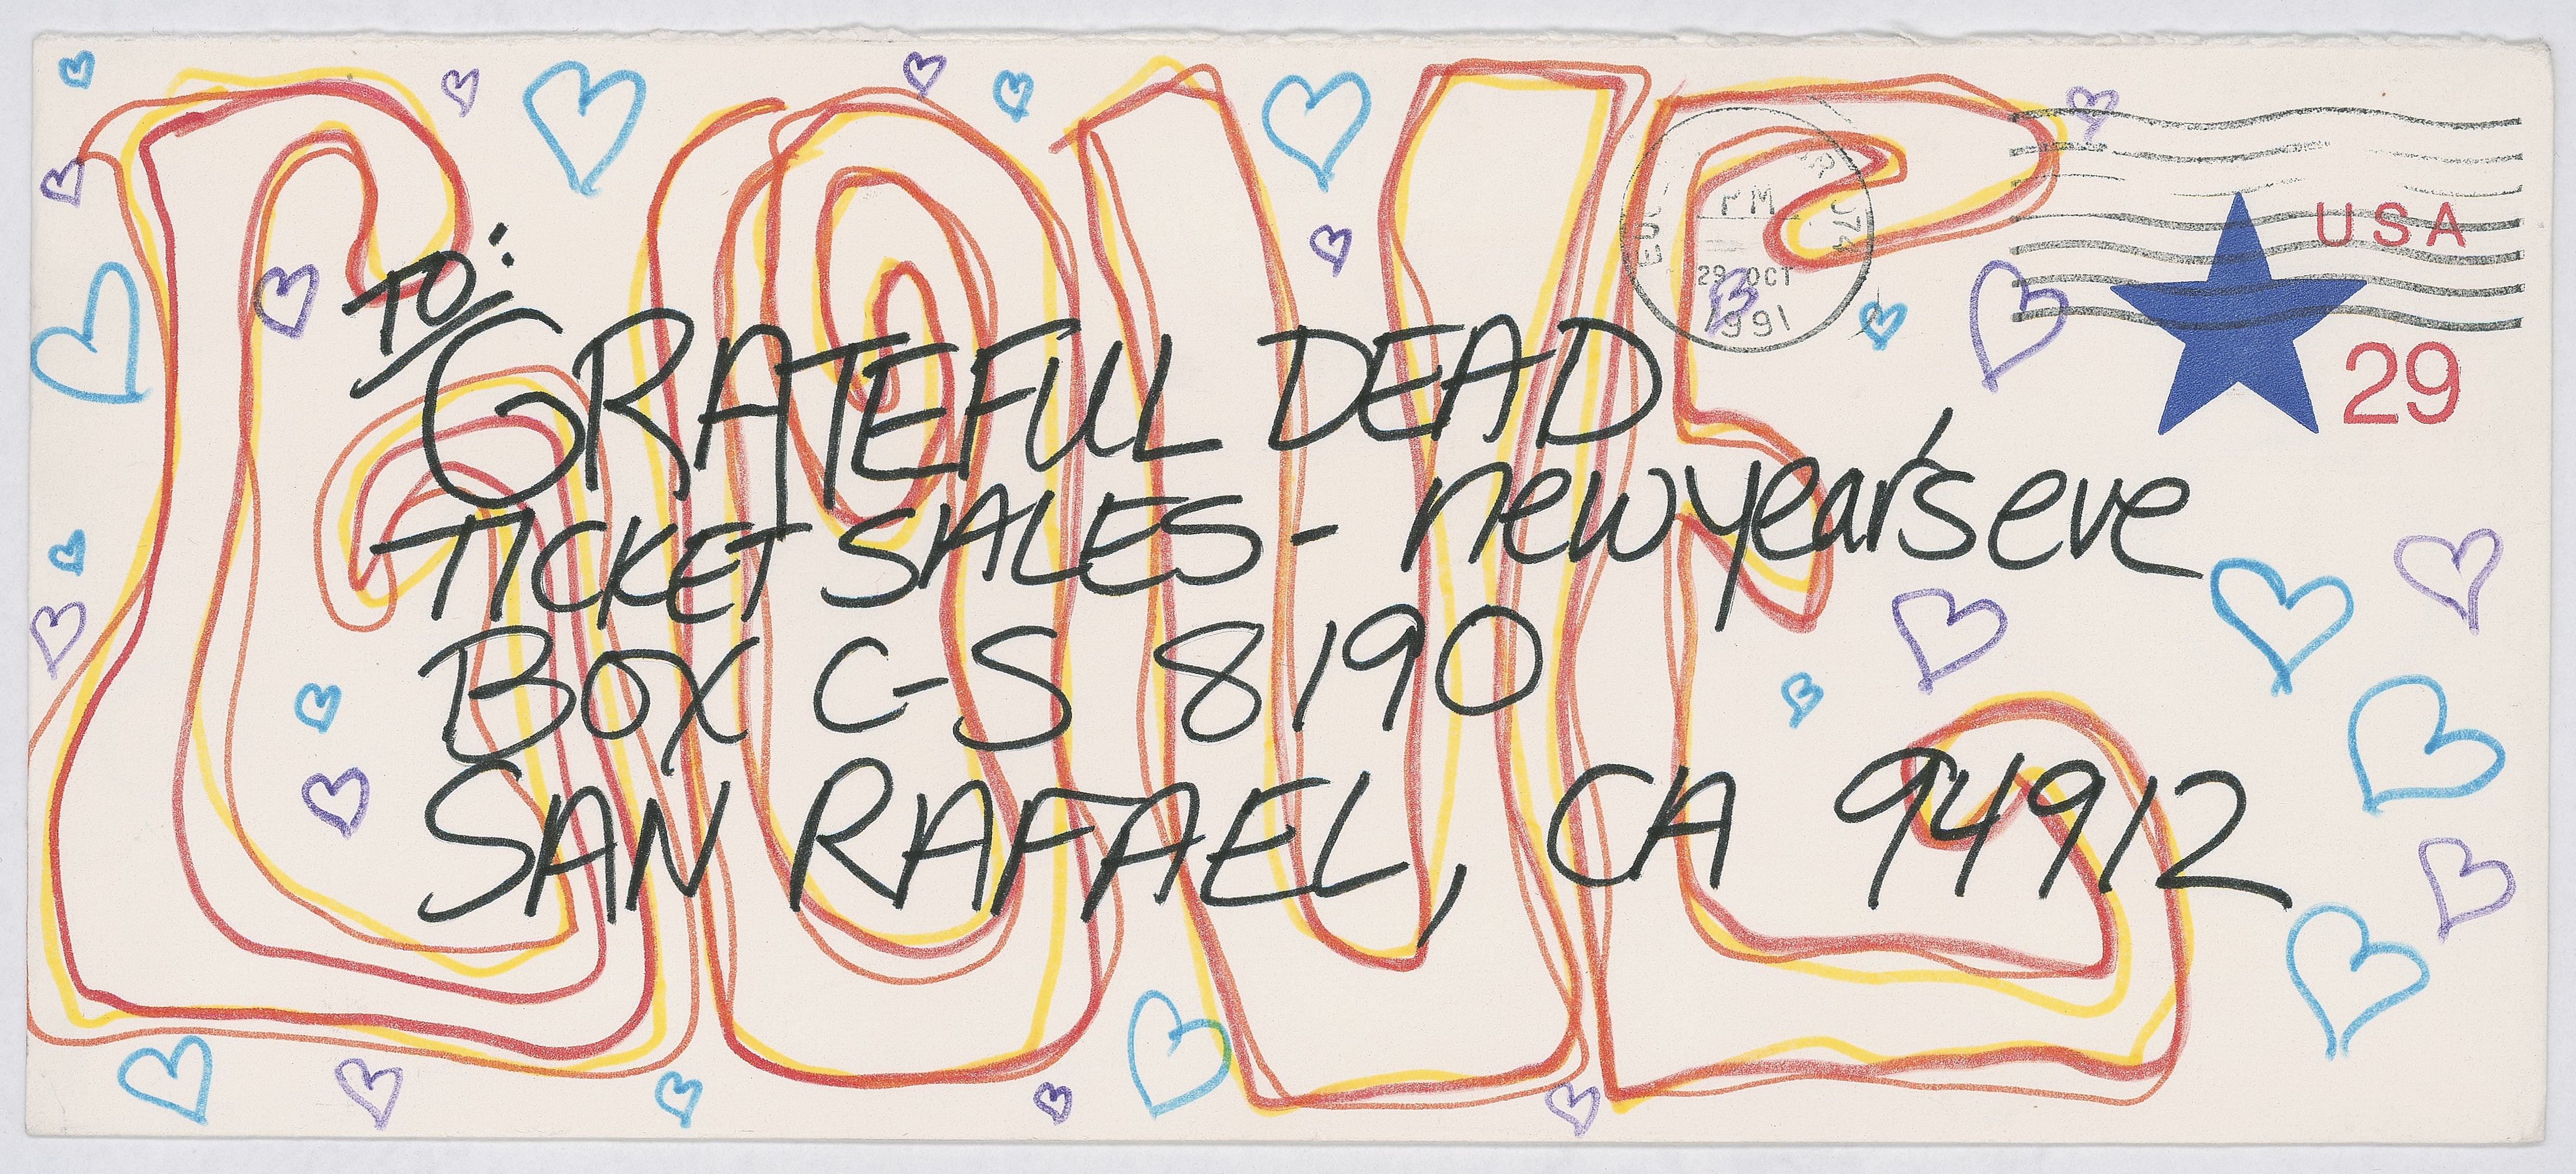 LOVE
TO:
GRATEFUL DEAD
TICKET SALES - new year's eve
BOX C-S 8190
SAN RAFAEL, CA 94912
PM
29 OCT
1991
USA
29